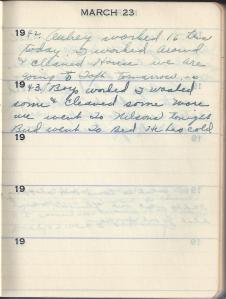 MARCH 23
1942. Aubrey worked 16 this
today I worked around
& cleaned House we are
going to Taft tomorrow
1943. Boys worked I washed
some & cleaned some more
we went to Nelsons tonight
Bud went to Bed He has cold
19
19
19